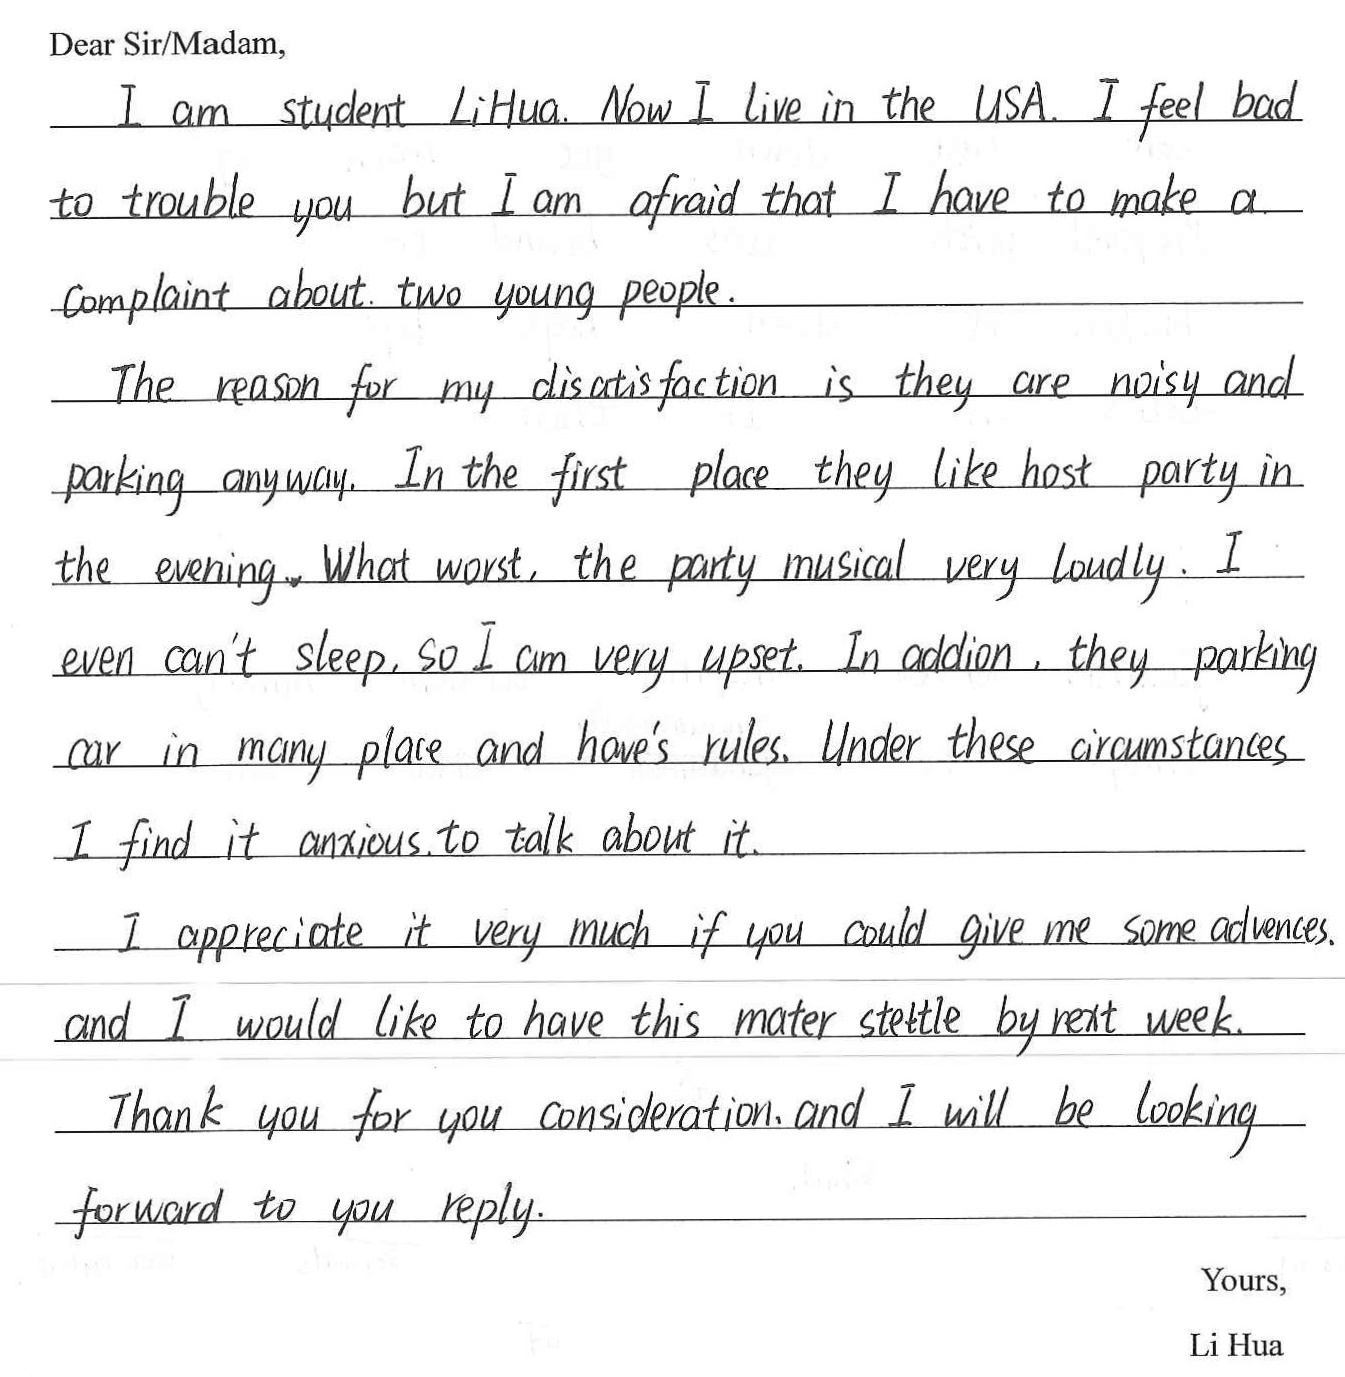 Dear Sir/Madam,
I am student LiHua. Now I live in the USA. I feel bad
to trouble you but I am afraid that I have to make a
complaint about. two young people.
The reason for my disatisfaction is they are noisy and
parking anyway. In the first place they like host party in
the evening. What worst, the party musical very loudly. I
even can't sleep, so I am very upset. In addion, they parking
car in many place and have's rules. Under these circumstances
I find it anxious. to talk about it.
I appreciate it very much if you could give me some advences.
and I would like to have this mater stettle by next week.
Thank you for you consideration. and I will be looking
forward to you reply.
Yours,
Li Hua